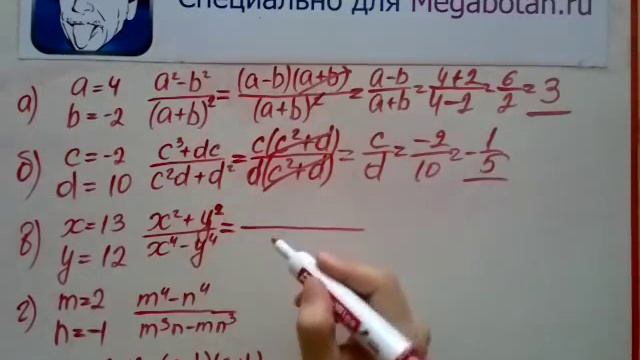 Специально для Megabotan.ru
а) a=4 b=-2 (a²-b²)/(a+b)² = ((a-b)(a+b))/(a+b)² = (a-b)/(a+b) = (4+2)/(4-2) = 6/2 = 3
б) c=-2 d=10 (c³+dc)/(c²d+d²) = (c(c²+d))/(d(c²+d)) = c/d = -2/10 = -1/5
в) x=13 y=12 (x²+y²)/(x⁴-y⁴) =
г) m=2 n=-1 (m⁴-n⁴)/(m³n-mn³)